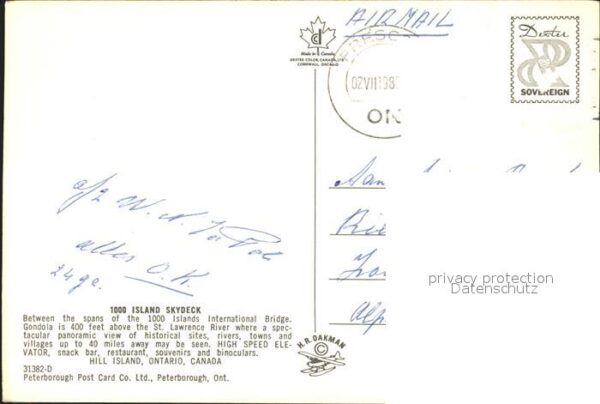 AIRMAIL
Made in Canada
DEXTER COLOR CANADA LTD
CORNWALL, ONTARIO
Dexter
SOVEREIGN
02 VII 198
ON
Aan
alles O.K.
privacy protection
Datenschutz
Alp
1000 ISLAND SKYDECK
Between the spans of the 1000 Islands International Bridge.
Gondola is 400 feet above the St. Lawrence River where a spec-
tacular panoramic view of historical sites, rivers, towns and
villages up to 40 miles away may be seen. HIGH SPEED ELE-
VATOR, snack bar, restaurant, souvenirs and binoculars.
HILL ISLAND, ONTARIO, CANADA
31382-D
Peterborough Post Card Co. Ltd., Peterborough, Ont.
H. R. OAKMAN
©